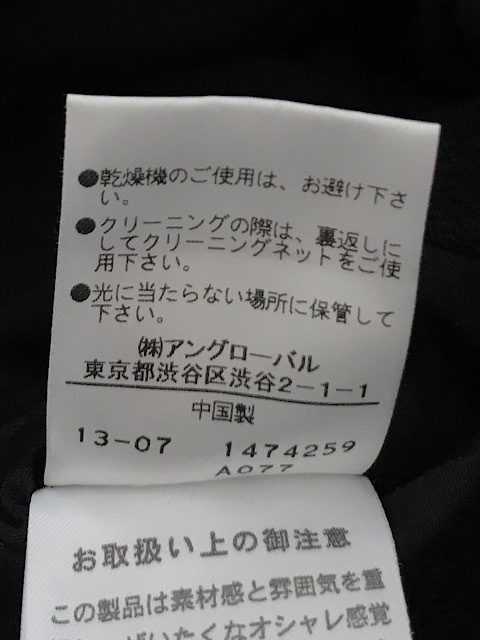 ●乾燥機のご使用は、お避け下さ
い。
●クリーニングの際は、裏返しに
してクリーニングネットをご使
用下さい。
●光に当たらない場所に保管して
下さい。
㈱アングローバル
東京都渋谷区渋谷2-1-1
中国製
13-07 1474259
A077
お取扱い上の御注意
この製品は素材感と雰囲気を重
ぜいたくなオシャレ感覚